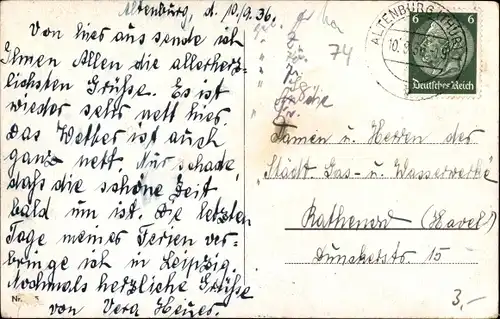 Altenburg, d. 10/9.36.
Von hier aus sende ich
Ihnen Allen die allerherz-
lichsten Grüße. Es ist
wieder sehr nett hier.
Das Wetter ist auch
ganz nett. Nur schade,
daß die schöne Zeit
bald um ist. Die letzten
Tage meines Ferien ver-
bringe ich in Leipzig.
Nochmals herzliche Grüße
von Vera
74
ALTENBURG (THÜR)
10.9.36
6 6
Deutsches Reich
An die
Damen u. Herren der
Städt. Gas- u. Wasserwerke
Rathenow (Havel)
Dunckerstr. 15
3,-